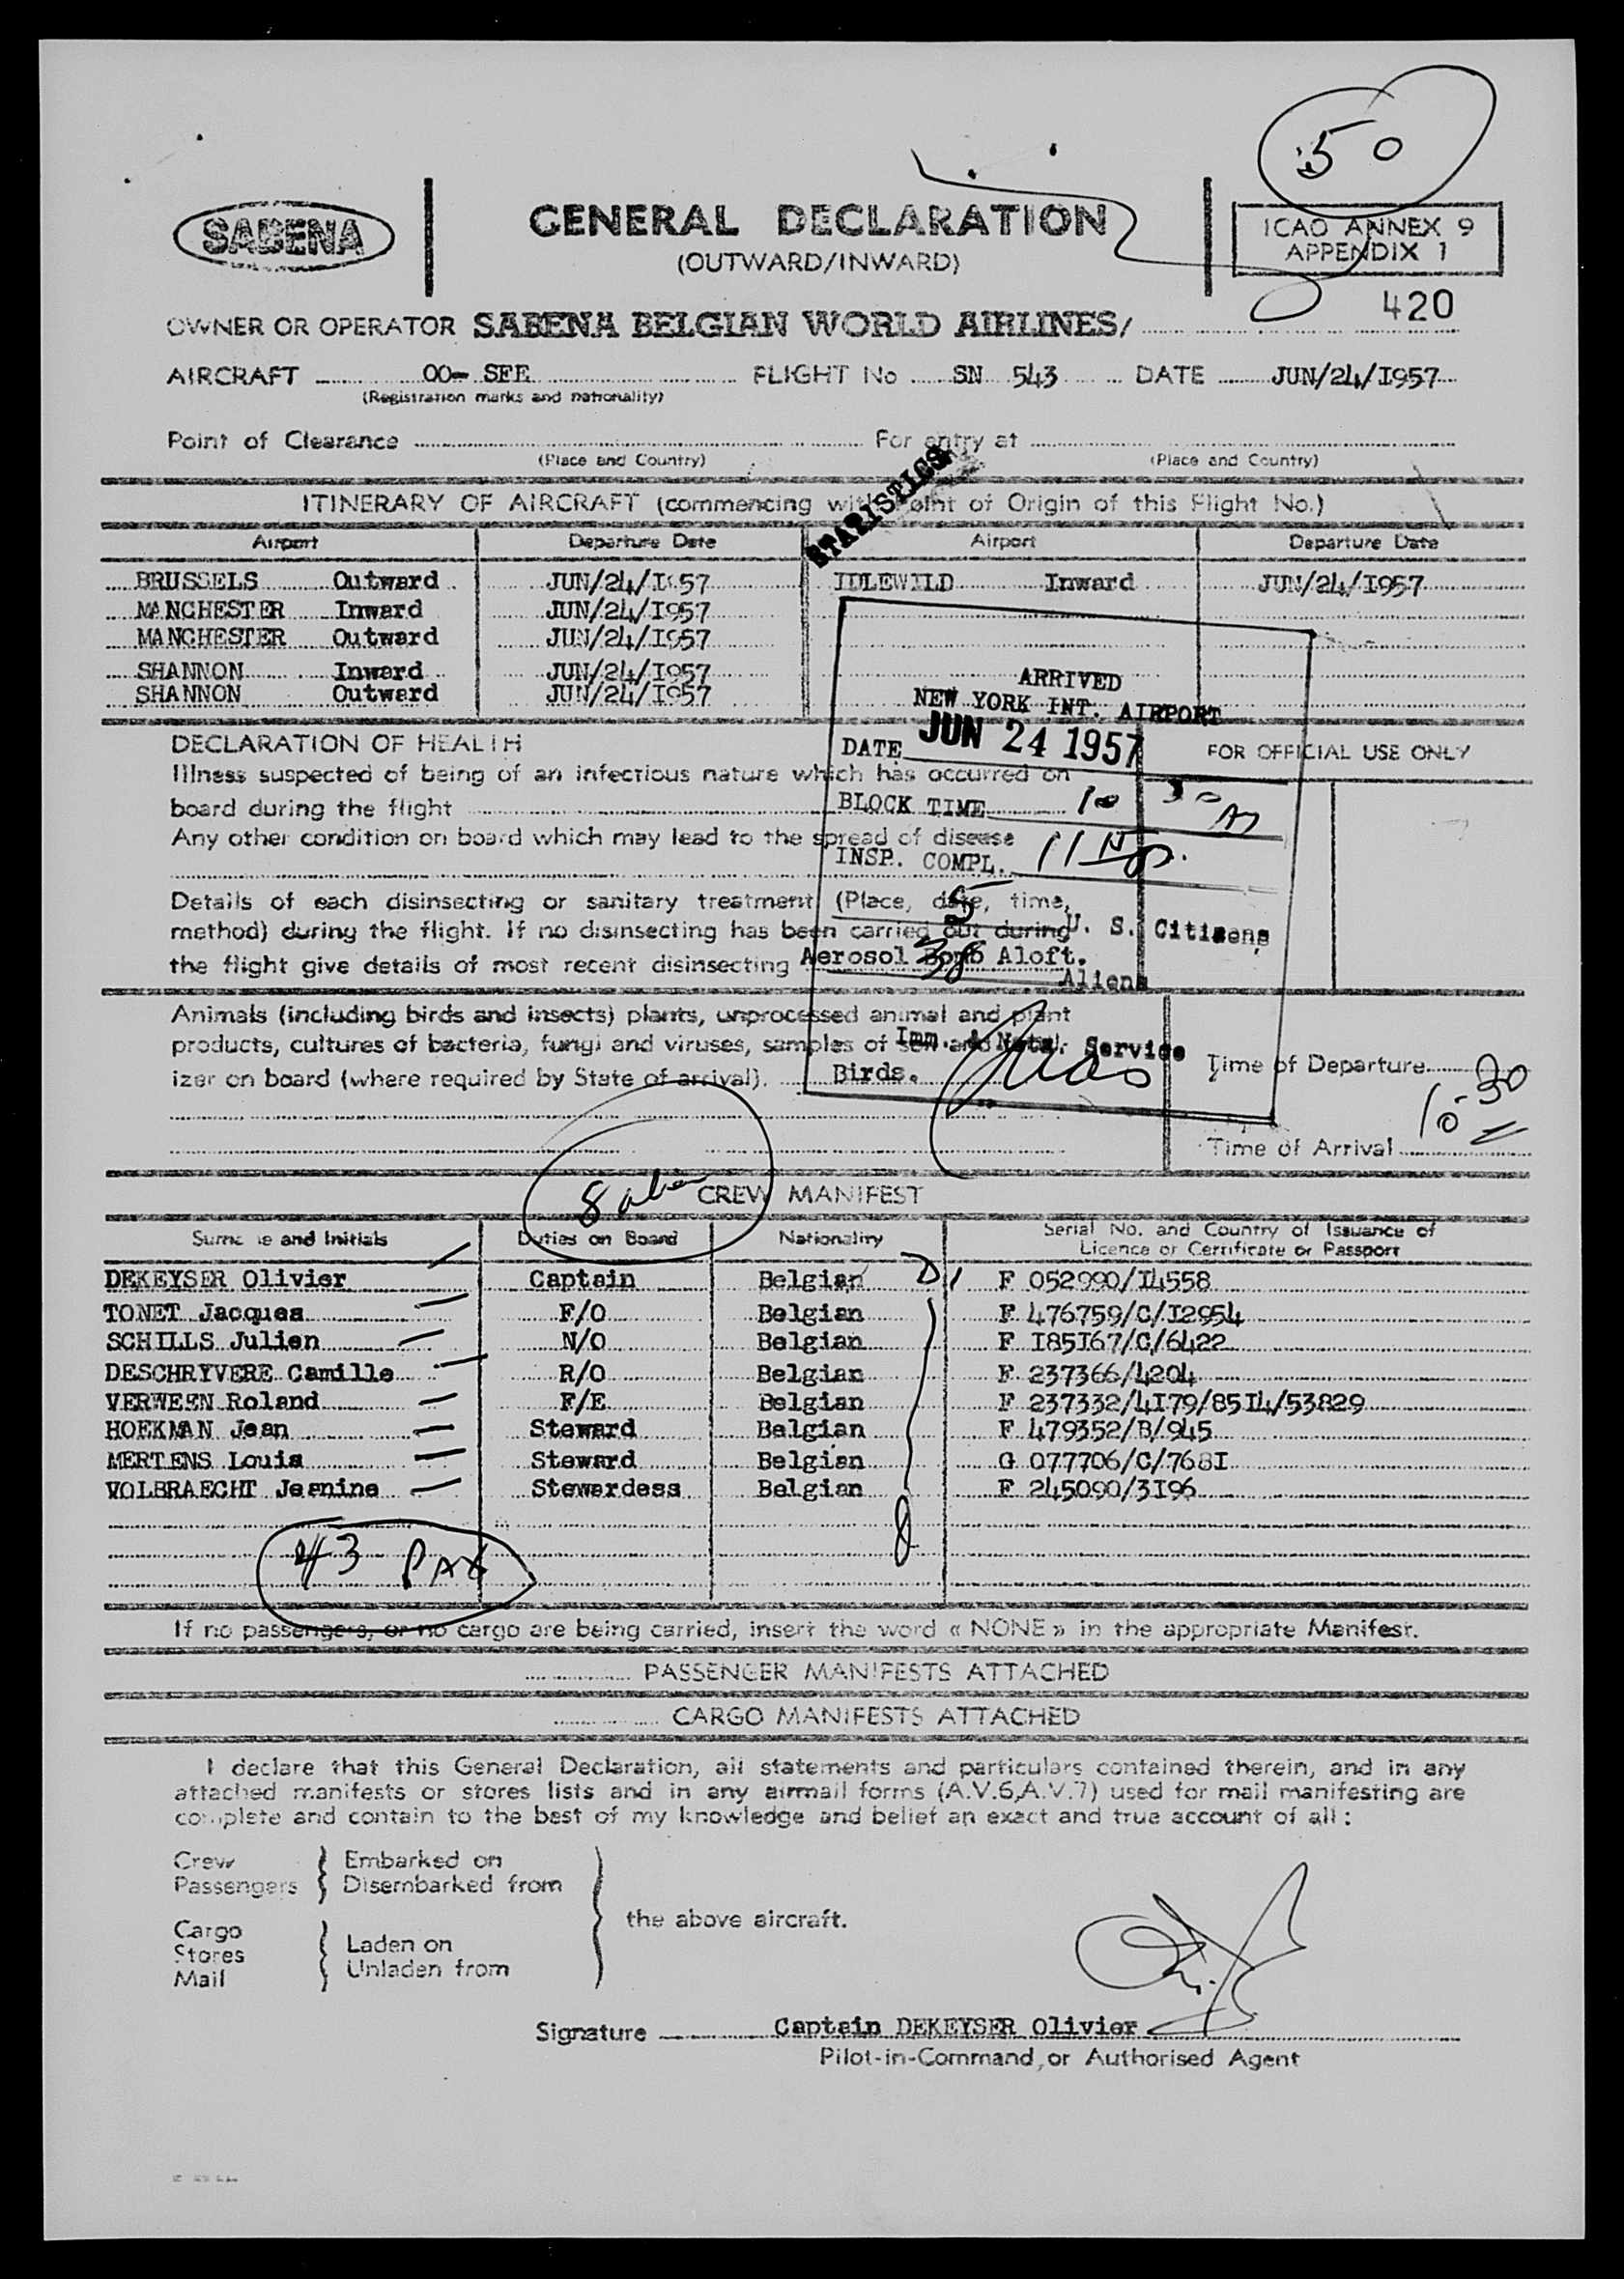 50
SABENA
GENERAL DECLARATION
(OUTWARD/INWARD)
ICAO ANNEX 9
APPENDIX 1
420
OWNER OR OPERATOR SABENA BELGIAN WORLD AIRLINES/
AIRCRAFT OO- SFE FLIGHT No SN 543 DATE JUN/24/I957
(Registration marks and nationality)
Point of Clearance For entry at
(Place and Country) (Place and Country)
STATISTICS
ITINERARY OF AIRCRAFT (commencing with Point of Origin of this Flight No.)
Airport Departure Date Airport Departure Date
BRUSSELS Outward JUN/24/I957 IDLEWILD Inward JUN/24/I957
MANCHESTER Inward JUN/24/I957
MANCHESTER Outward JUN/24/I957
SHANNON Inward JUN/24/I957
SHANNON Outward JUN/24/I957
ARRIVED
NEW YORK INT. AIRPORT
DATE JUN 24 1957
BLOCK TIME 10 30 A
INSP. COMPL. 11
5 U. S. Citizens
38 Aliens
Imm. & Natz. Service
DECLARATION OF HEALTH
FOR OFFICIAL USE ONLY
Illness suspected of being of an infectious nature which has occurred on
board during the flight
Any other condition on board which may lead to the spread of disease
Details of each disinsecting or sanitary treatment (Place, date, time,
method) during the flight. If no disinsecting has been carried out during
the flight give details of most recent disinsecting Aerosol Bomb Aloft.
Animals (including birds and insects) plants, unprocessed animal and plant
products, cultures of bacteria, fungi and viruses, samples of soil and
izer on board (where required by State of arrival). Birds.
Time of Departure
10-30
Time of Arrival
CREW MANIFEST
Surname and Initials Duties on Board Nationality Serial No. and Country of Issuance of
Licence or Certificate or Passport
DEKEYSER Olivier Captain Belgian F 052990/I4558
TONET Jacques F/O Belgian F 476759/C/I2954
SCHILLS Julien N/O Belgian F I85I67/C/6422
DESCHRYVERE Camille R/O Belgian F 237366/4204
VERWEEN Roland F/E Belgian F 237332/4I79/85I4/53829
HOEKMAN Jean Steward Belgian F 479352/B/945
MERTENS Louis Steward Belgian G 077706/C/768I
VOLBRAECHT Jeanine Stewardess Belgian F 245090/3I96
43 PAX
If no passengers, or no cargo are being carried, insert the word « NONE » in the appropriate Manifest.
PASSENGER MANIFESTS ATTACHED
CARGO MANIFESTS ATTACHED
I declare that this General Declaration, all statements and particulars contained therein, and in any
attached manifests or stores lists and in any airmail forms (A.V.6,A.V.7) used for mail manifesting are
complete and contain to the best of my knowledge and belief an exact and true account of all :
Crew Embarked on
Passengers Disembarked from
the above aircraft.
Cargo
Stores Laden on
Mail Unladen from
Signature Captain DEKEYSER Olivier
Pilot-in-Command, or Authorised Agent